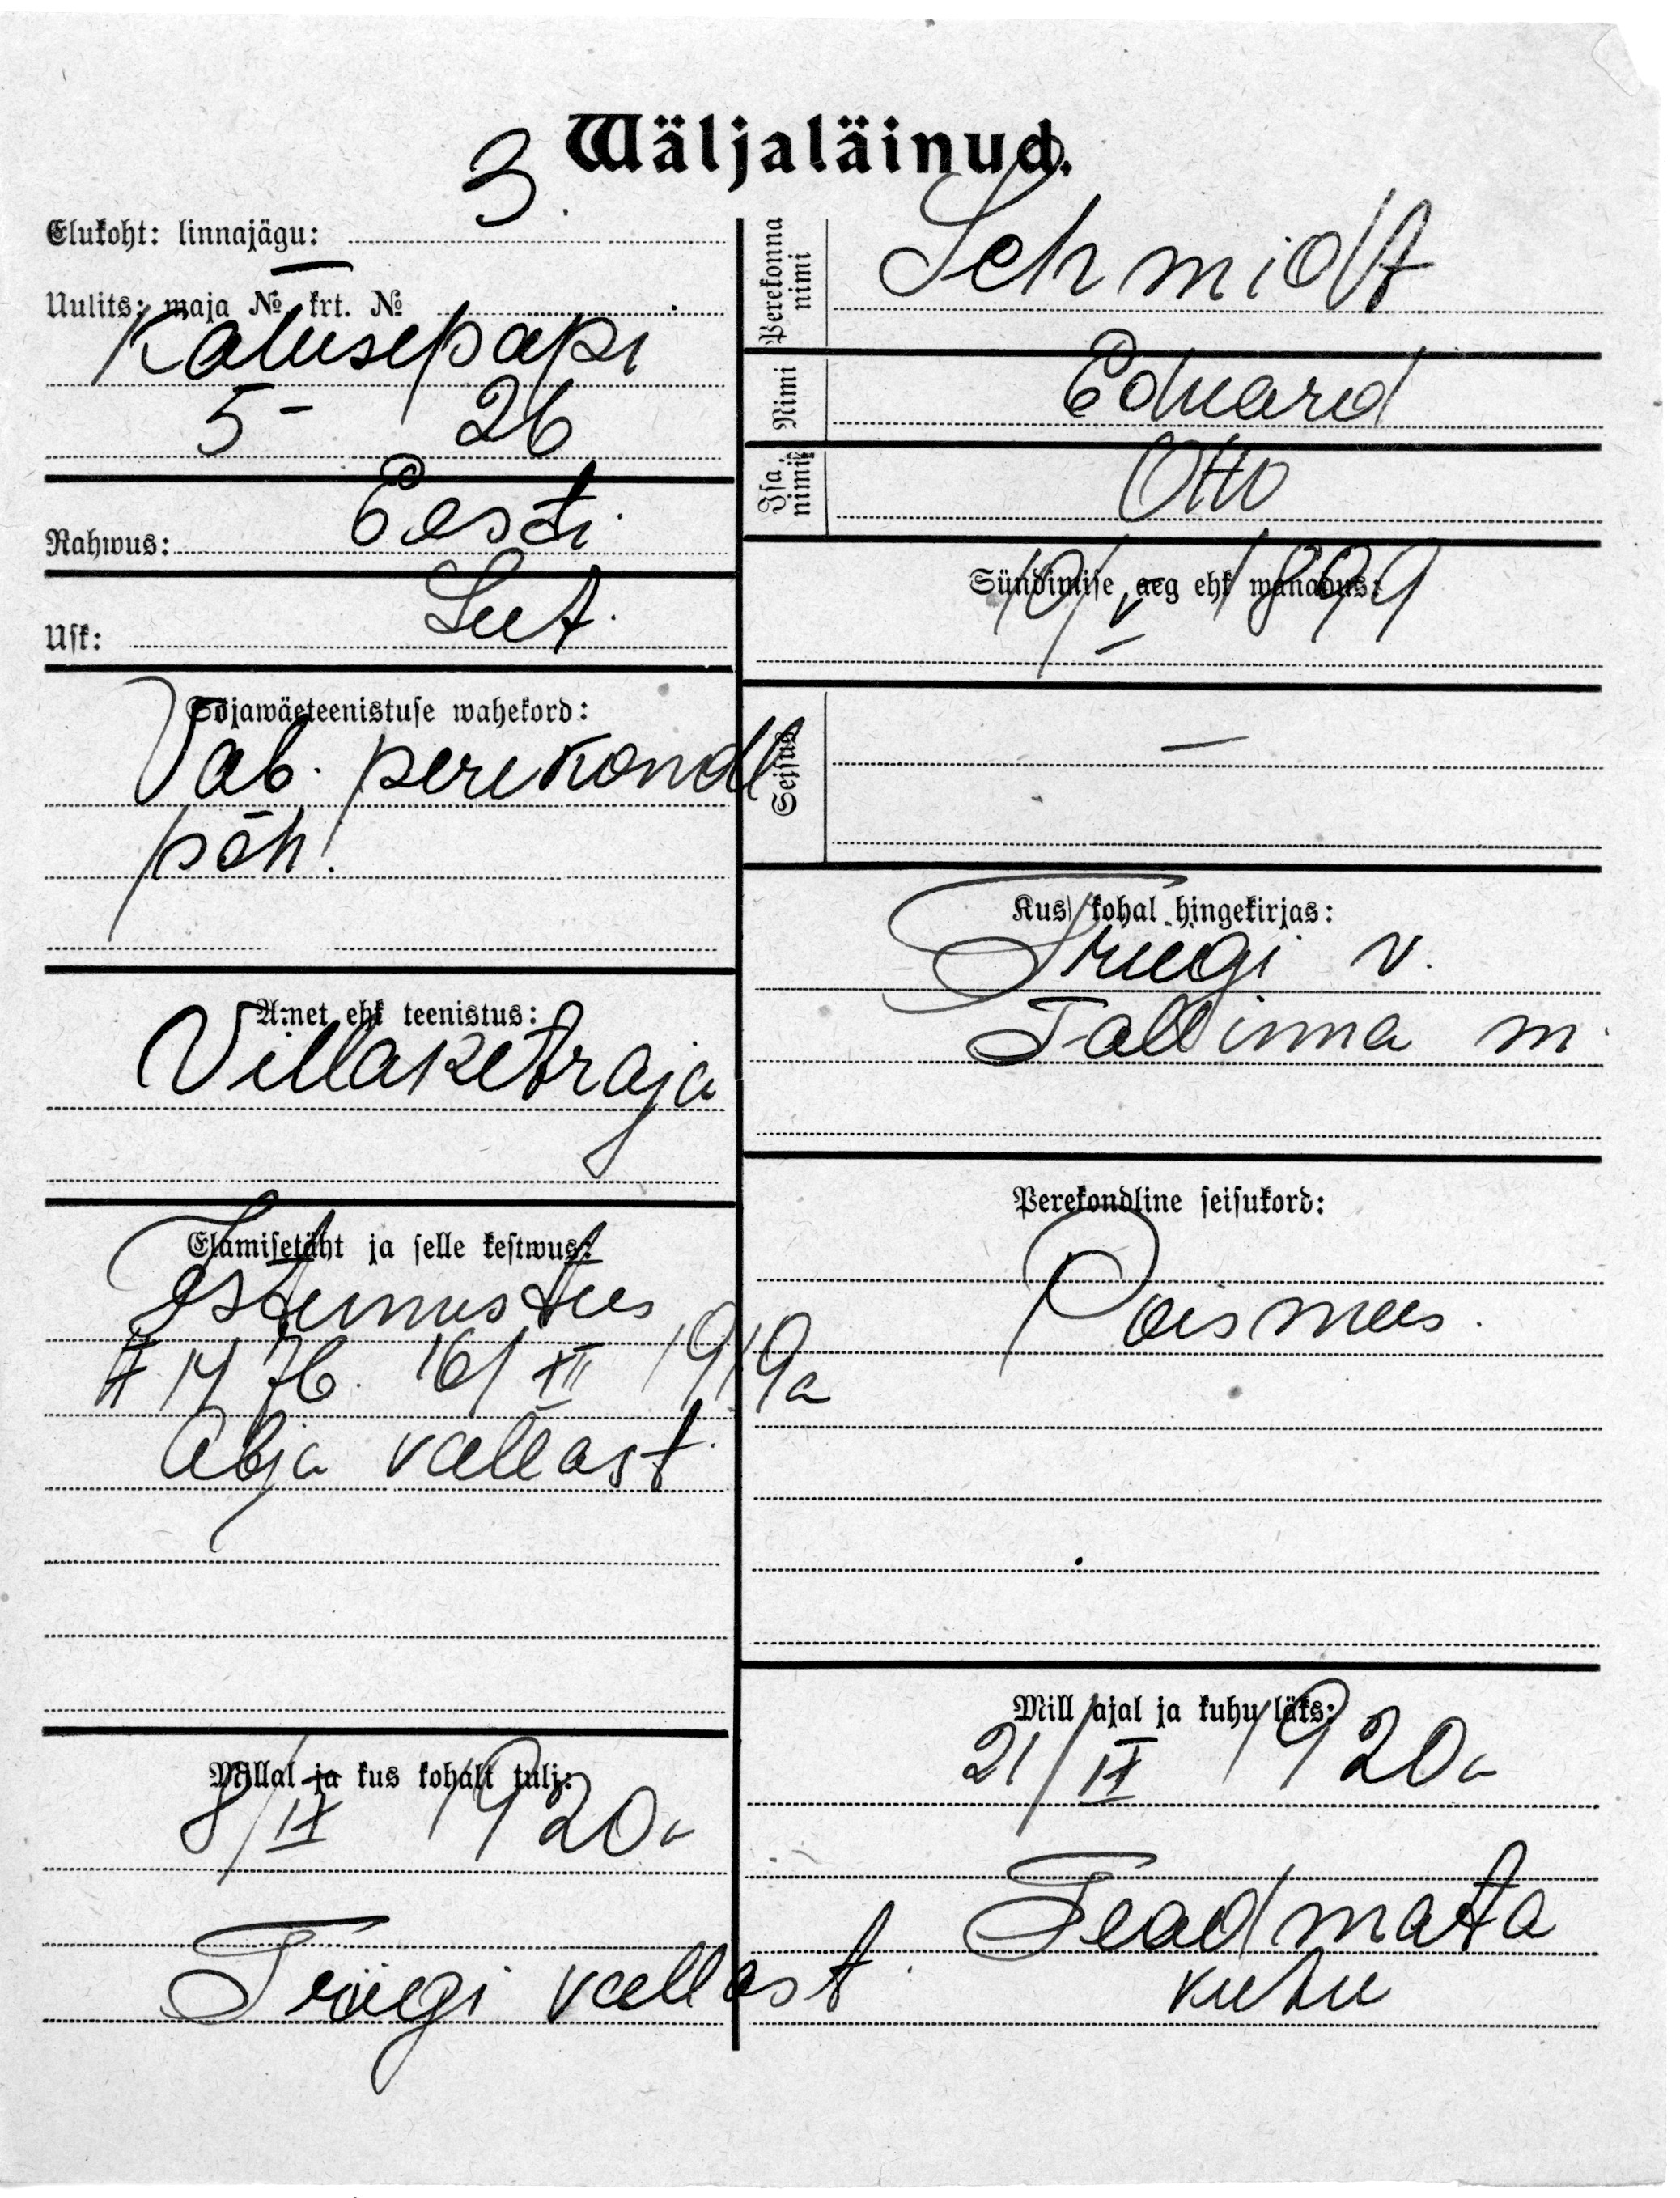 Wäljaläinud.
Elukoht: linnajägu: 3.
Uulits: maja № krt. №
Katusepapi
5 - 26
Rahwus: Eesti
Usk: Lut.
Sõjawäeteenistuse wahekord:
Vab. perekondl
põh.
Amet ehk teenistus:
Villaketraja
Elamisetäht ja selle kestwus:
tunnistus
1476. 16/XII 1919a
Abja vallast
Millal ja kus kohalt tuli:
8/IX 1920a
Triigi vallast.
Perekonna nimi
Schmidt
Nimi
Eduard
Isa nimi
Otto
Sündimise aeg ehk wanadus:
10/V 1899
Seisus
—
Kus kohal hingekirjas:
Triigi v.
Tallinna m.
Perekondline seisukord:
Poismees.
Mill ajal ja kuhu läks:
21/IX 1920a
Teadmata
kuhu